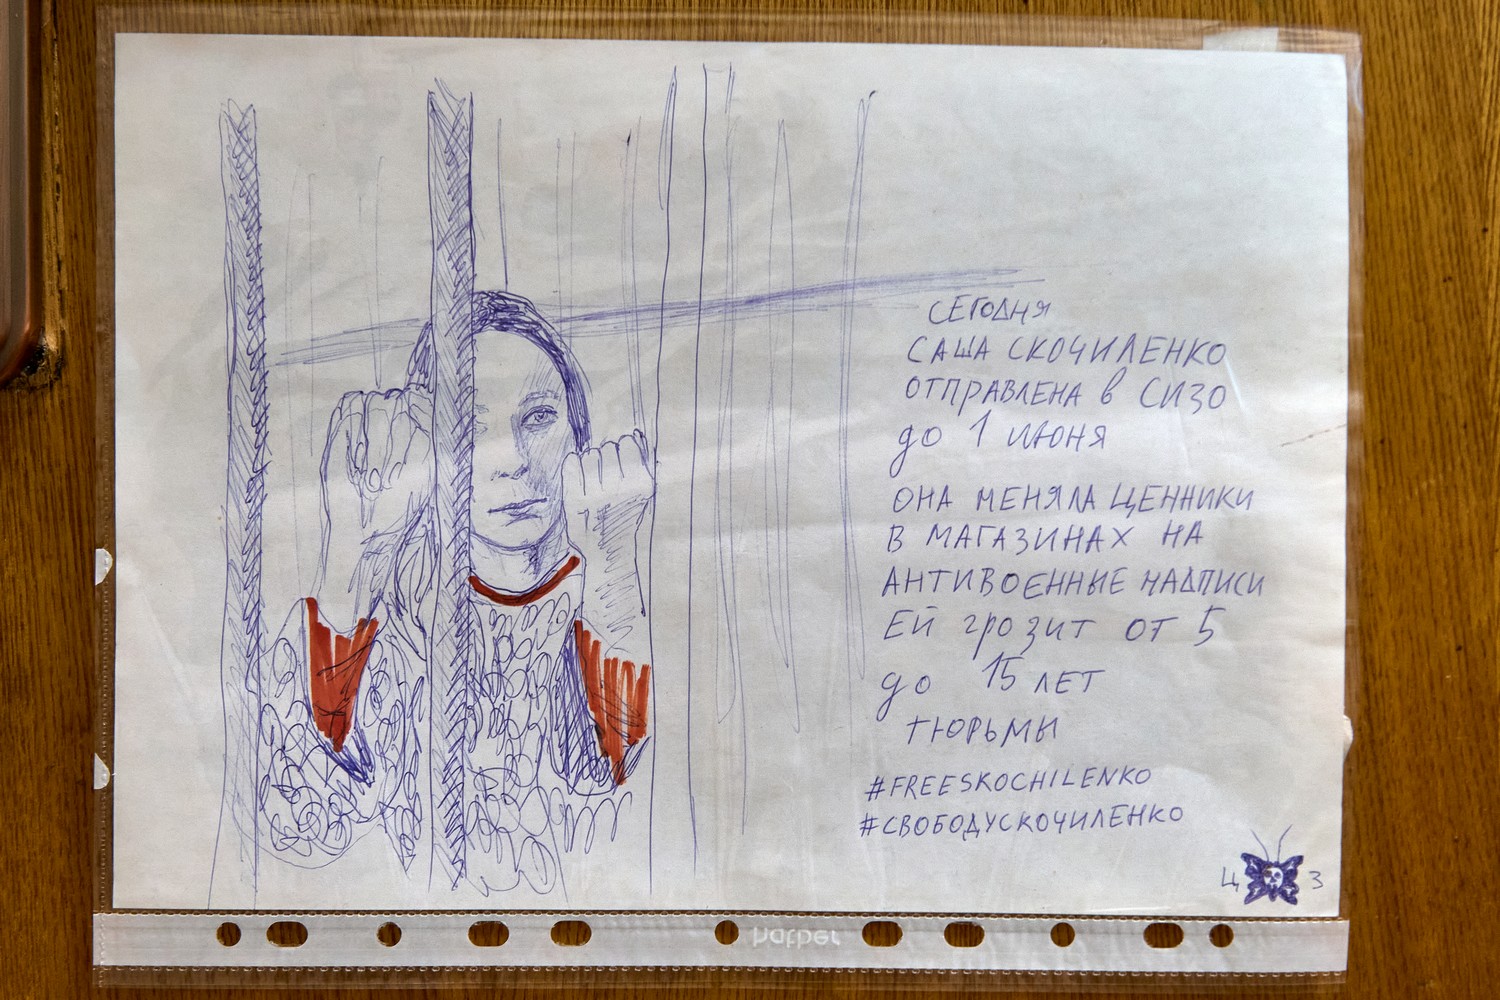 СЕГОДНЯ
САША СКОЧИЛЕНКО
ОТПРАВЛЕНА В СИЗО
до 1 ИЮНЯ
ОНА МЕНЯЛА ЦЕННИКИ
В МАГАЗИНАХ НА
АНТИВОЕННЫЕ НАДПИСИ
ЕЙ грозит от 5
до 15 ЛЕТ
ТЮРЬМЫ
#FREESKOCHILENKO
#СВОБОДУСКОЧИЛЕНКО
Ц З
hatber